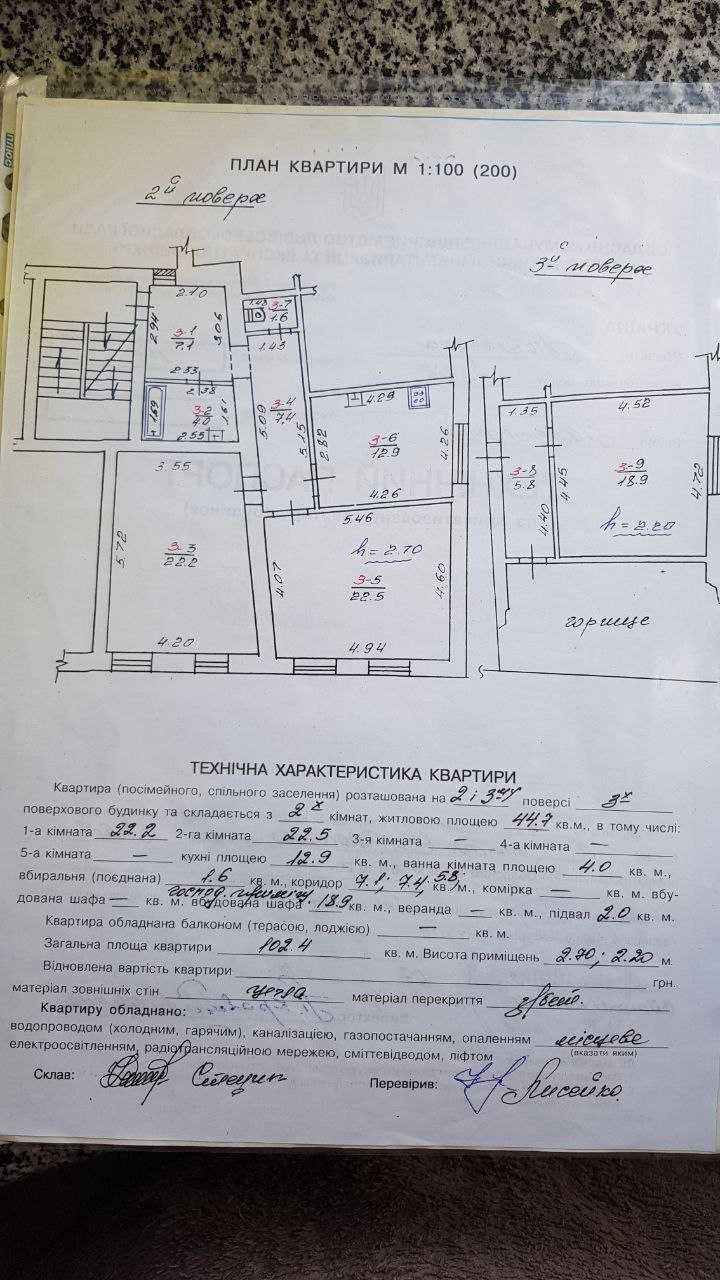 ПЛАН КВАРТИРИ М 1:100 (200)
2й поверх
3й поверх
2.10
2.94
3-1
7.1
3.06
2.33
1.43
3-7
1.6
1.43
2.38
1.69
3-2
4.0
1.61
2.55
3-4
7.4
5.09
5.15
4.29
2.82
3-6
12.9
4.26
4.26
3.55
5.72
3-3
22.2
4.20
5.46
h = 2.70
4.07
3-5
22.5
4.60
4.94
1.35
3-8
5.8
4.40
4.52
4.45
3-9
18.9
4.72
h = 2.20
горище
ТЕХНІЧНА ХАРАКТЕРИСТИКА КВАРТИРИ
Квартира (посімейного, спільного заселення) розташована на 2 і 3му поверсі 3х
поверхового будинку та складається з 2х кімнат, житловою площею 44.7 кв.м., в тому числі:
1-а кімната 22.2 2-га кімната 22.5 3-я кімната — 4-а кімната —
5-а кімната — кухні площею 12.9 кв. м., ванна кімната площею 4.0 кв. м.,
вбиральня (поєднана) 1.6 кв. м., коридор 7.1; 7.4; 5.8; кв. м., комірка — кв. м. вбу-
дована шафа — кв. м. вбудована шафа господ. приміщ. 18.9 кв. м., веранда — кв. м., підвал 2.0 кв. м.
Квартира обладнана балконом (терасою, лоджією) — кв. м.
Загальна площа квартири 102.4 кв. м. Висота приміщень 2.70; 2.20 м.
Відновлена вартість квартири грн.
матеріал зовнішніх стін цегла матеріал перекриття з/бет.
Квартиру обладнано:
водопроводом (холодним, гарячим), каналізацією, газопостачанням, опаленням місцеве
(вказати яким)
електроосвітленням, радіотрансляційною мережею, сміттєвідводом, ліфтом
Склав:
Перевірив: Лисейко.